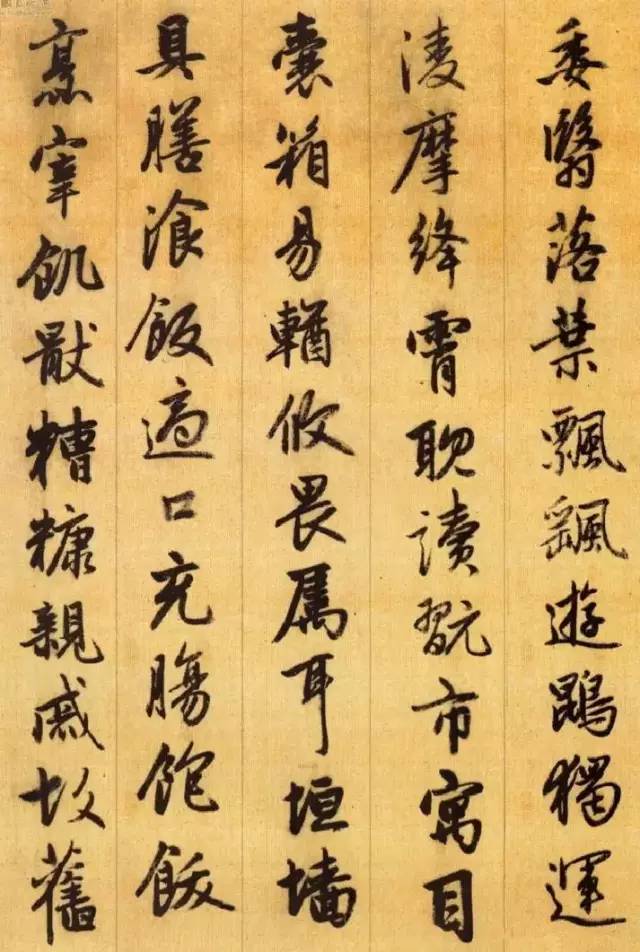 委翳落葉飄飖遊鵾獨運
淩摩絳霄耽讀翫市寓目
囊箱易輶攸畏属耳垣墻
具膳湌飯適口充腸飽飫
烹宰飢猒糟糠親戚故舊